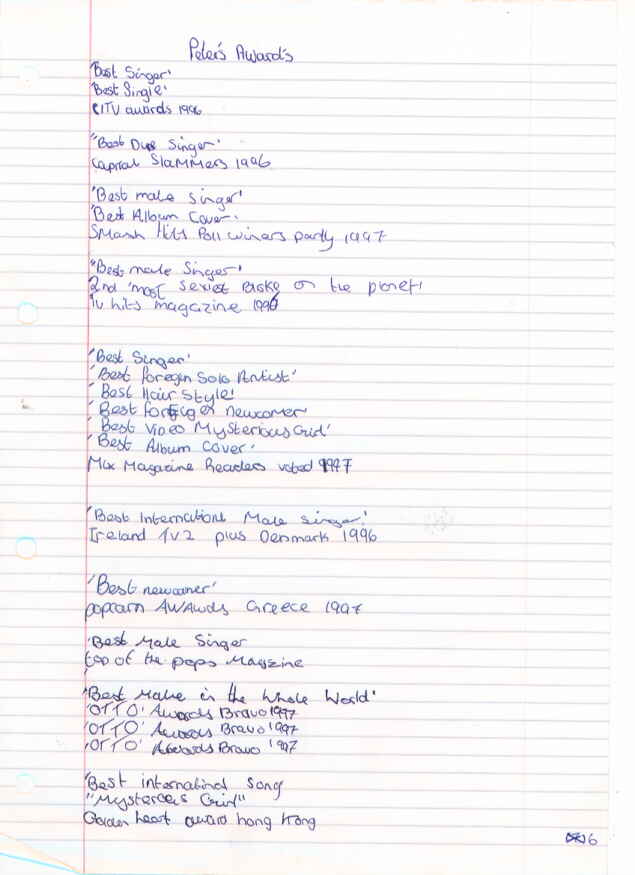 Peter's Awards
'Best Singer'
'Best Single'
CITV awards 1996
"Best Due Singer'
Capital Slammers 1996
'Best male Singer'
'Best Album Cover.
Smash Hits Poll winers party 1997
"Best male Singer'
2nd 'most Sexiet on the planet!
TV hits magazine 1996
'Best Singer'
'Best foregin Solo Artist'
'Best Hair Style'
'Best newcomer'
'Best Video Mysterious Girl'
'Best Album Cover.'
Mix Magazine Readers voted 1997
'Best International Male singer.'
Ireland plus Denmark 1996
'Best newcomer'
popcorn AWAwds Greece 1997
'Best Male Singer
top of the pops Magzine
'Best Male in the whole World'
'OTTO' Awards Bravo 1997
'OTTO' Awards Bravo 1997
'OTTO' Awards Bravo 1997
'Best internatinal song
"Mystereous Girl"
Golden heart award hong kong
6